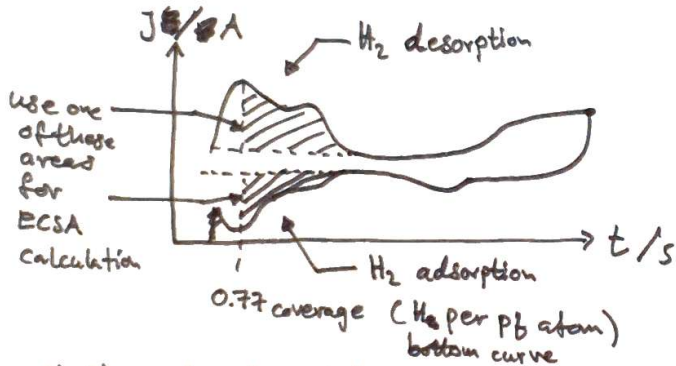 J/A
H₂ desorption
use one
of these
areas
for
ECSA
calculation
t/s
H₂ adsorption
0.77 coverage (H per pt atom)
bottom curve